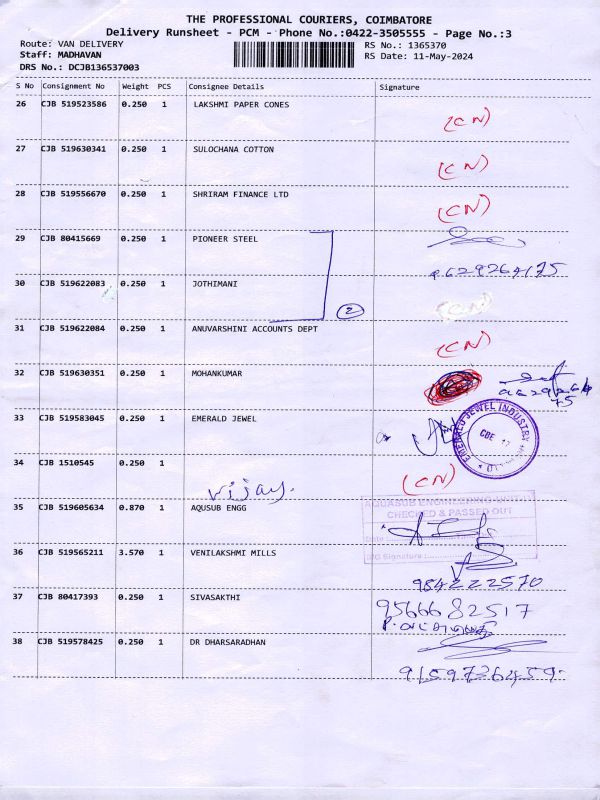 THE PROFESSIONAL COURIERS, COIMBATORE
Delivery Runsheet - PCM - Phone No.:0422-3505555 - Page No.:3
Route: VAN DELIVERY
RS No.: 1365370
Staff: MADHAVAN
RS Date: 11-May-2024
DRS No.: DCJB136537003
S No Consignment No Weight PCS Consignee Details Signature
26 CJB 519523586 0.250 1 LAKSHMI PAPER CONES (CN)
27 CJB 519630341 0.250 1 SULOCHANA COTTON (CN)
28 CJB 519556670 0.250 1 SHRIRAM FINANCE LTD (CN)
29 CJB 80415669 0.250 1 PIONEER STEEL
8629264175
30 CJB 519622083 0.250 1 JOTHIMANI (CN)
2
31 CJB 519622084 0.250 1 ANUVARSHINI ACCOUNTS DEPT (CN)
32 CJB 519630351 0.250 1 MOHANKUMAR
33 CJB 519583045 0.250 1 EMERALD JEWEL
EMERALD JEWEL INDUSTRY
CBE
34 CJB 1510545 0.250 1 (CN)
vijay.
35 CJB 519605634 0.870 1 AQUSUB ENGG
AQUASUB ENGINEERING UNIT
CHECKED & PASSED OUT
Date
Signature
36 CJB 519565211 3.570 1 VENILAKSHMI MILLS
9842222570
37 CJB 80417393 0.250 1 SIVASAKTHI 9566682517
38 CJB 519578425 0.250 1 DR DHARSARADHAN
9159736459